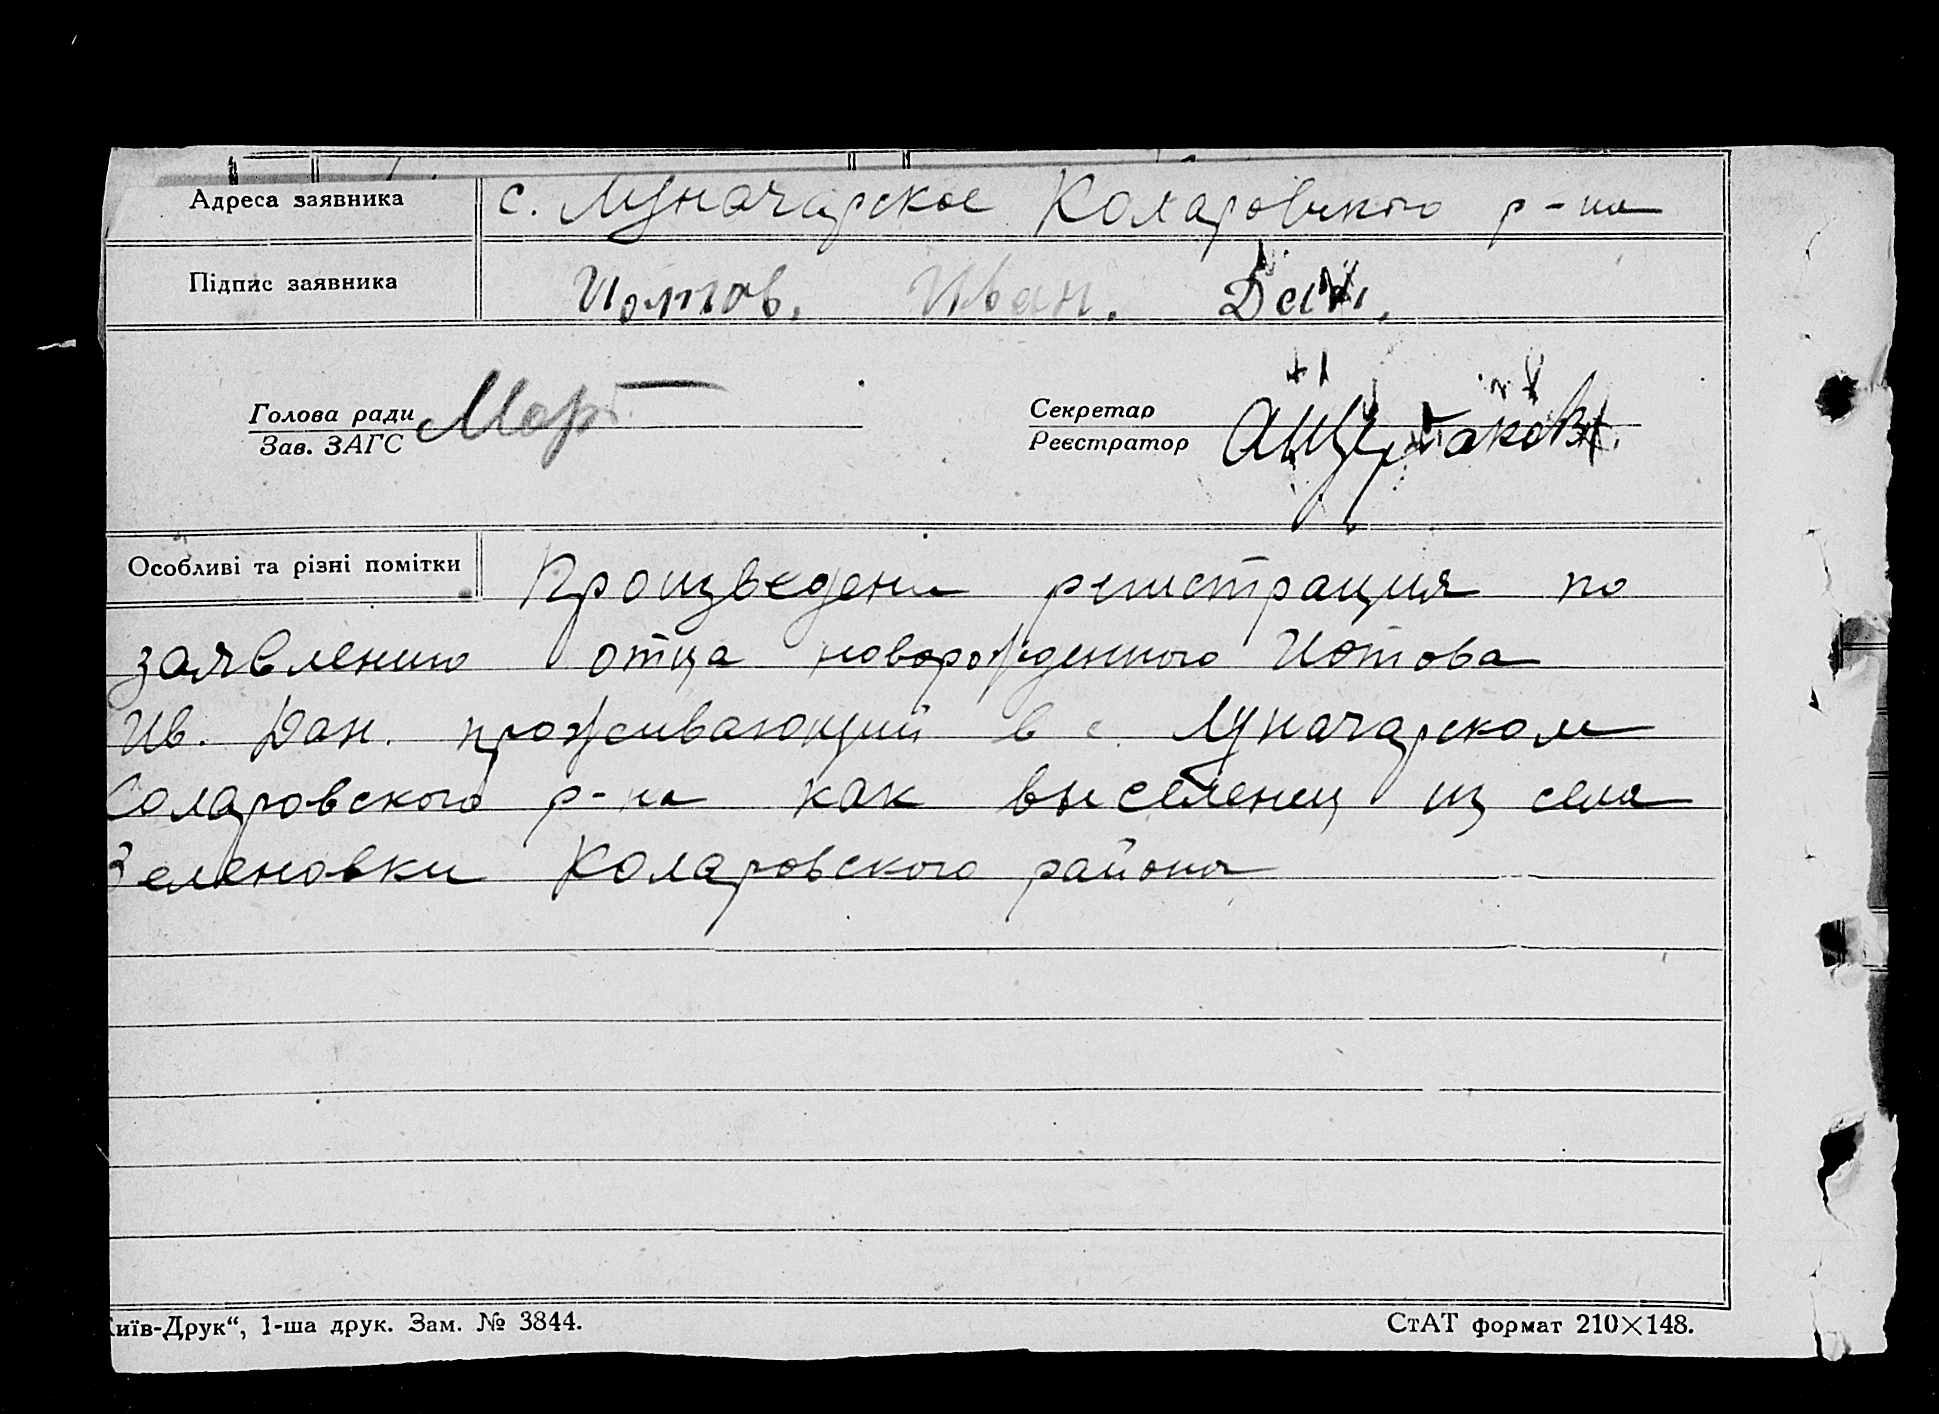 Адреса заявника
с. Луначарское Коларовского р-на
Підпис заявника
Иотов. Иван. Дан.
Голова ради
Зав. ЗАГС
Секретар
Реєстратор
Особливі та різні помітки
Произведена регистрация по
заявлению отца новорожденного Иотова
Ив. Дан. проживающий в с. Луначарском
Коларовского р-на как выселенец из села
Зеленовки Коларовского района
иїв-Друк“, 1-ша друк. Зам. № 3844.
СтАТ формат 210×148.